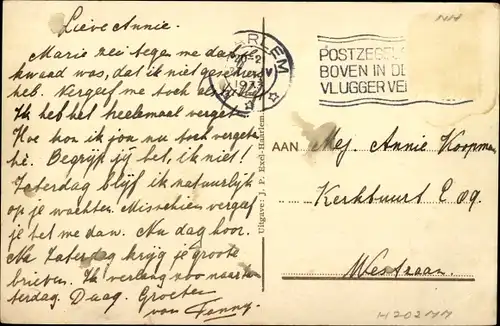 Lieve Annie.
Marie zei tegen me dat je
kwaad was, dat ik niet geschreven
heb. Vergeef me toch als
Ik heb het heelemaal vergeten
Hoe kon ik jou nu toch vergeten
hè. Begrijp jij het, ik niet!
Zaterdag blijf ik natuurlijk
op je wachten. Misschien vergeef
je het me dan. Nu dag hoor.
Na Zaterdag krijg je groote
brieven. Ik verlang zoo naar Za-
terdag. Daag. Groeten
van Fanny.
HAARLEM
Uitgave: J. P. Exel-Haarlem.
POSTZEGEL
BOVEN IN DE
VLUGGER VE
AAN Mej. Annie Koopman
Kerkbuurt C 09.
Westzaan.
H202MM